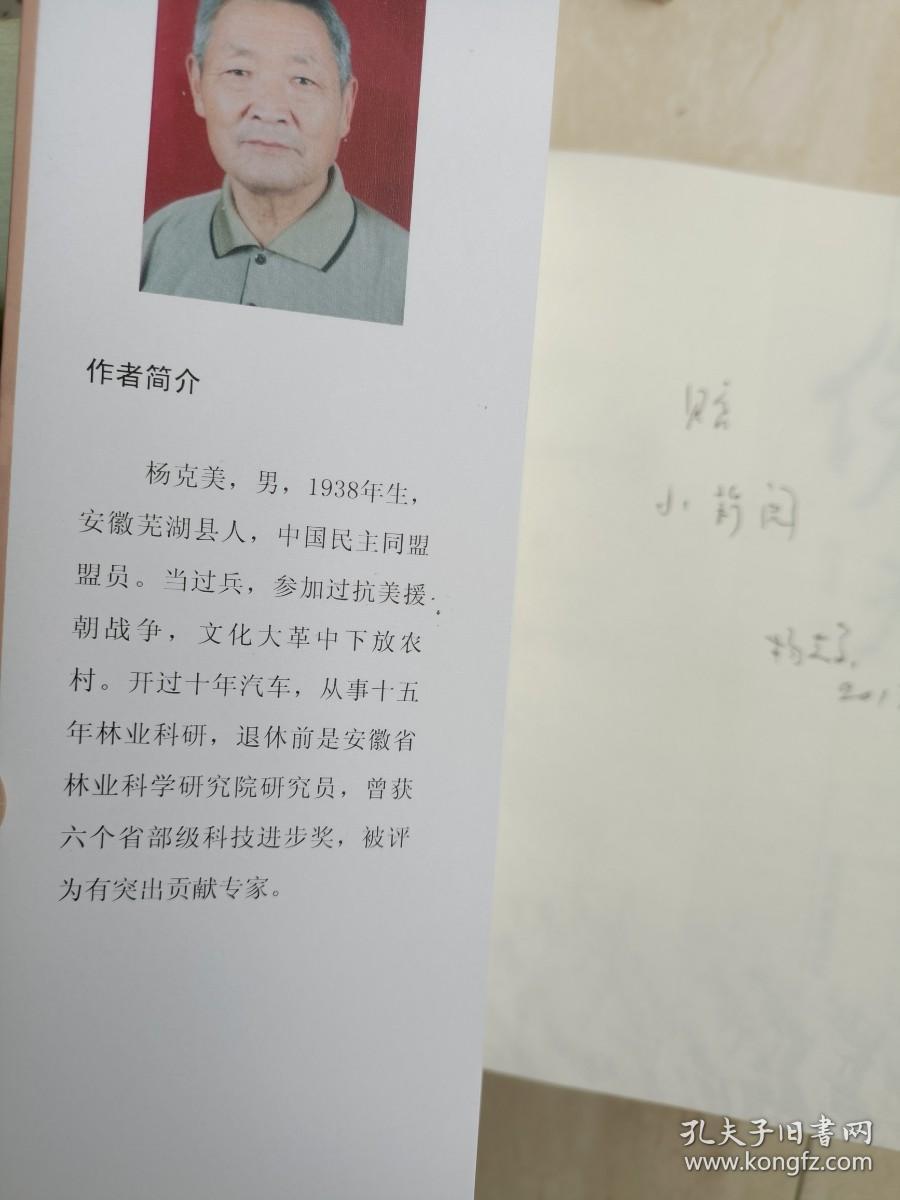 作者简介
杨克美，男，1938年生，
安徽芜湖县人，中国民主同盟
盟员。当过兵，参加过抗美援
朝战争，文化大革中下放农
村。开过十年汽车，从事十五
年林业科研，退休前是安徽省
林业科学研究院研究员，曾获
六个省部级科技进步奖，被评
为有突出贡献专家。
小
阅
杨
201
孔夫子旧书网
www.kongfz.com